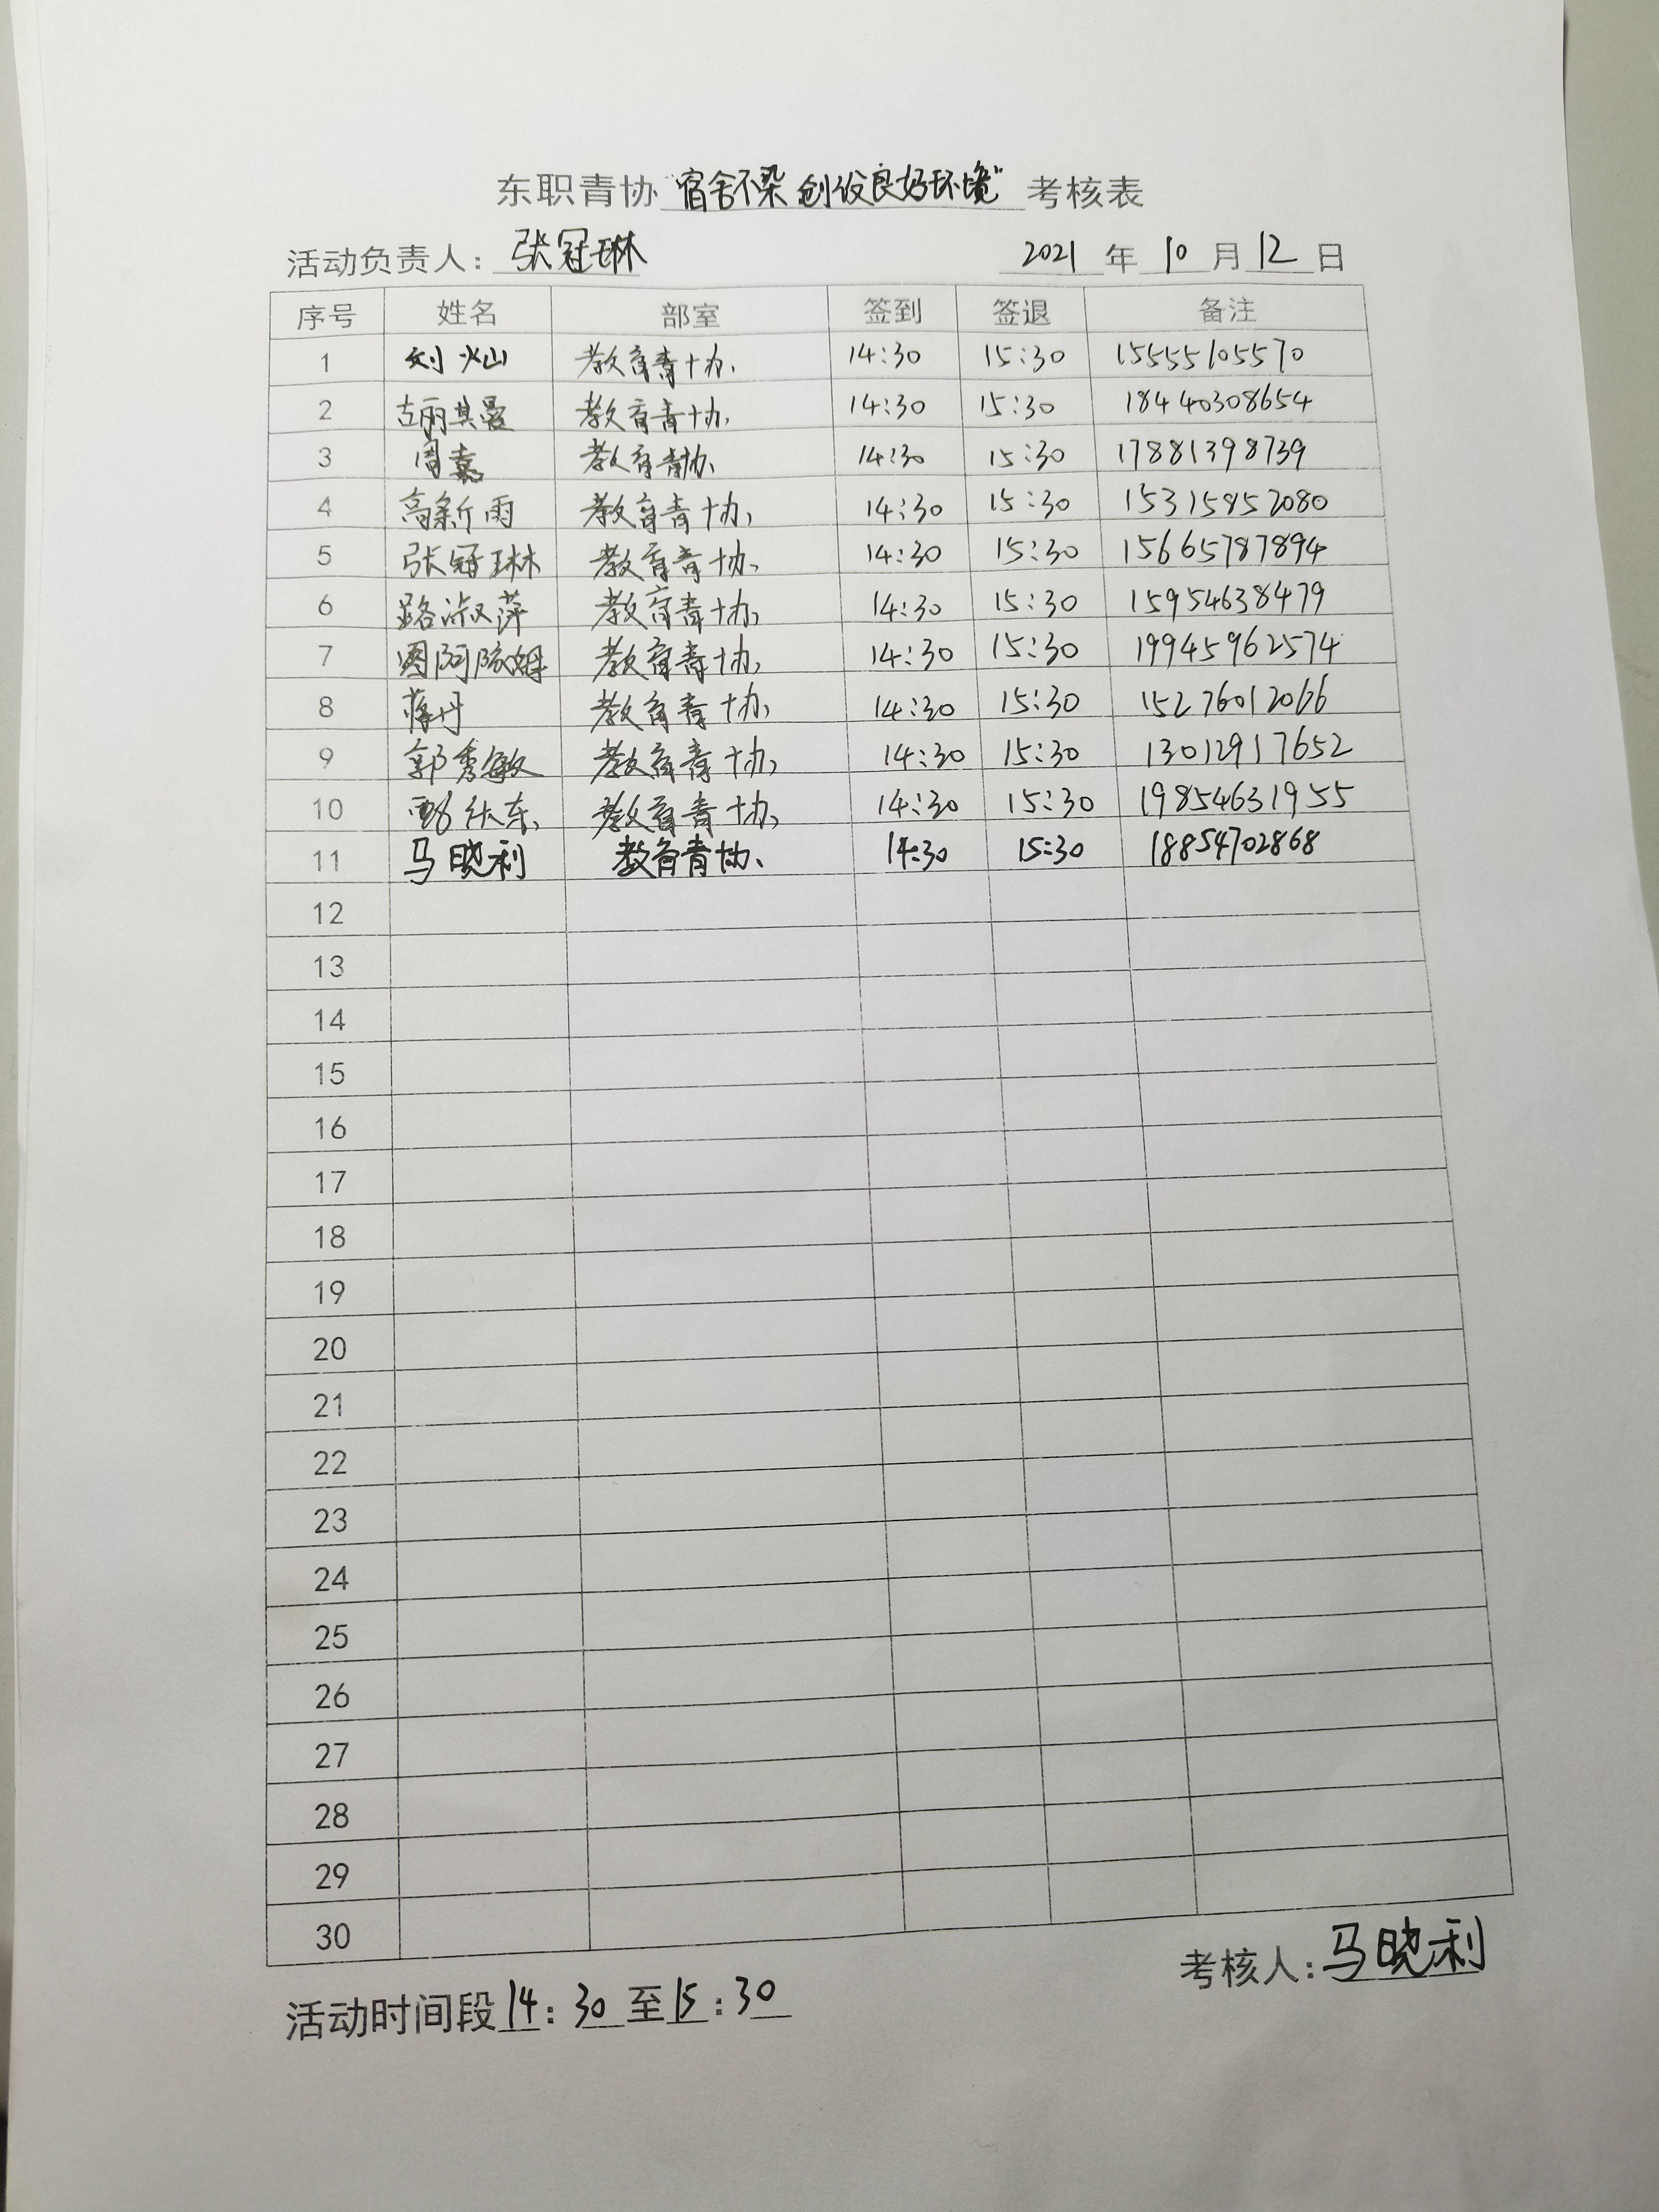 东职青协“宿舍不染 创设良好环境”考核表
活动负责人：张冠琳 2021年10月12日
序号 姓名 部室 签到 签退 备注
1 刘火山 教育青协 14:30 15:30 15555105570
2 古丽其曼 教育青协 14:30 15:30 18440308654
3 周嘉 教育青协 14:30 15:30 17881398739
4 高新雨 教育青协 14:30 15:30 15315852080
5 张冠琳 教育青协 14:30 15:30 15665787894
6 路淑萍 教育青协 14:30 15:30 15954638479
7 教育青协 14:30 15:30 19945962574
8 蒋丹 教育青协 14:30 15:30 15276012066
9 郭秀敏 教育青协 14:30 15:30 13012917652
10 教育青协 14:30 15:30 19854631955
11 马晓利 教育青协 14:30 15:30 18854702868
12
13
14
15
16
17
18
19
20
21
22
23
24
25
26
27
28
29
30
考核人：马晓利
活动时间段14：30至15：30